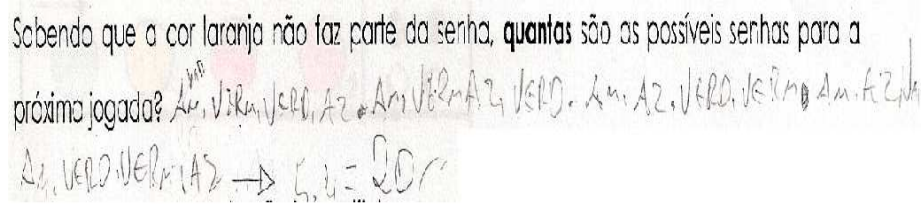 Sabendo que a cor laranja não faz parte da senha, quantas são as possíveis senhas para a
próxima jogada? Am, VERM, VERD, AZ. Am, VERM AZ, VERD. Am. AZ. VERD. VERM Am. AZ
VERD. VERM, AZ → = 20